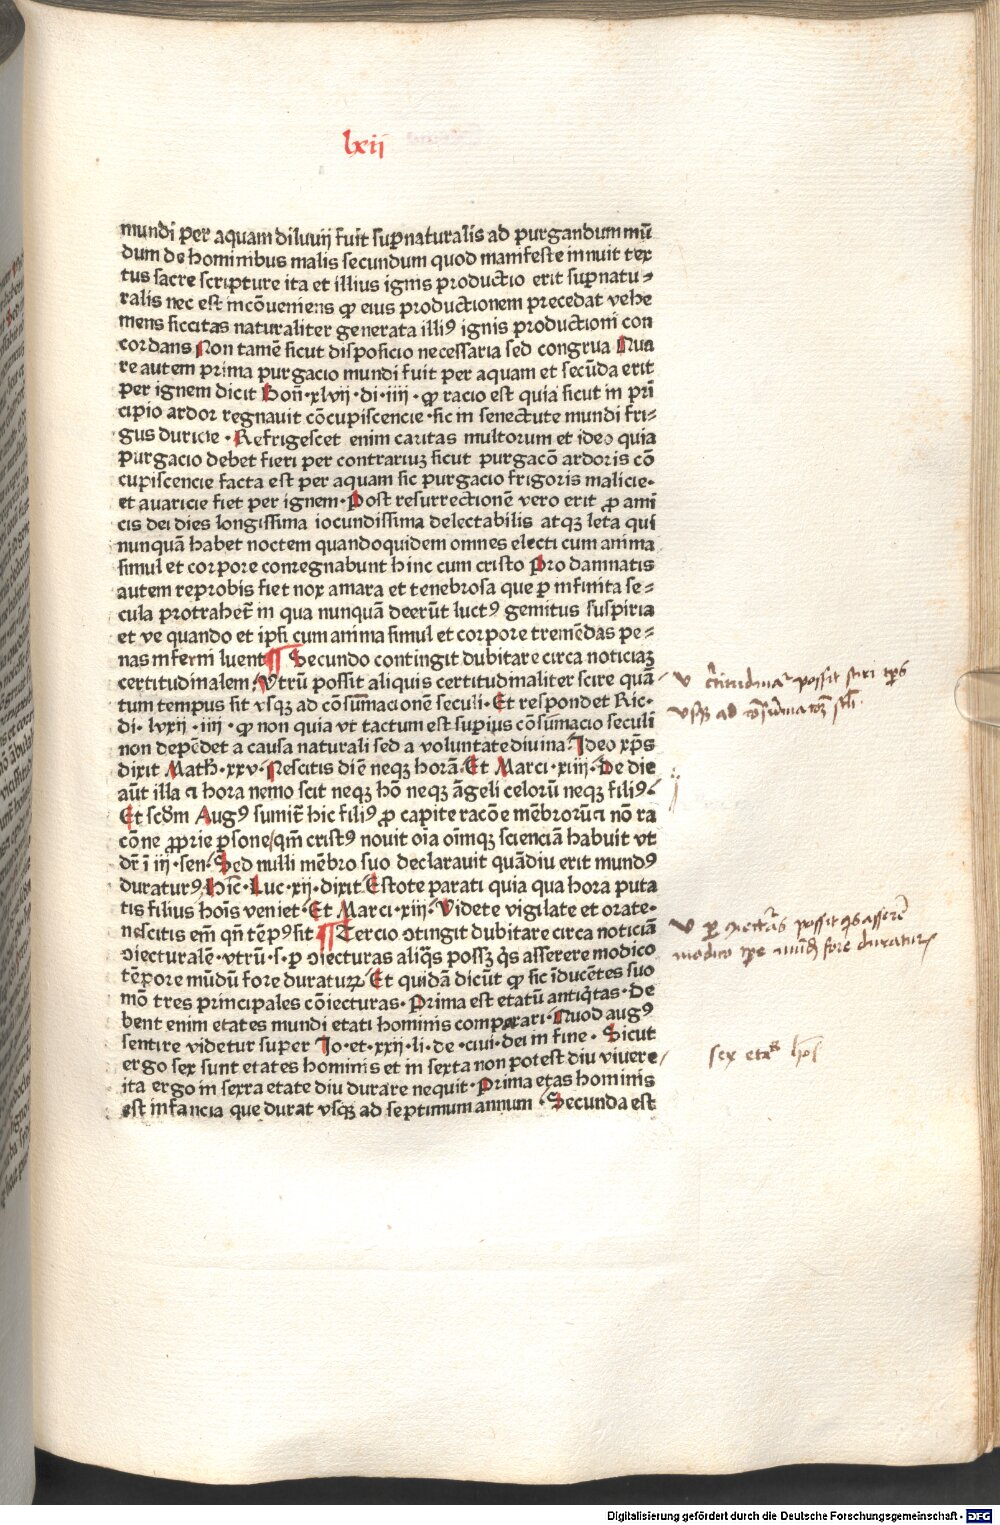 lxii
mundi per aquam diluuij fuit suꝑnaturalis ad purgandum mū
dum de hominibus malis secundum quod manifeste innuit tex
tus sacre scripture ita et illius ignis productio erit suꝑnatu⸗
ralis nec est incōueniens ꝙ eius productionem precedat vehe
mens siccitas naturaliter generata illiꝰ ignis productioni con
cordans Non tamē sicut disposicio necessaria sed congrua Qua
re autem prima purgacio mundi fuit per aquam et secūda erit
per ignem dicit Boñ·xlvij·di·iiij·ꝙ racio est quia sicut in prī
cipio ardor regnauit cōcupiscencie·sic in senectute mundi fri⸗
gus duricie·Refrigescet enim caritas multorum et ideo quia
purgacio debet fieri per contrariuꝫ sicut purgacō ardoris cō
cupiscencie facta est per aquam sic purgacio frigoris malicie·
et auaricie fiet per ignem·Post resurrectionē vero erit ꝓ ami
cis dei dies longissima iocundissima delectabilis atqꝫ leta qui
nunquā habet noctem quandoquidem omnes electi cum anima
simul et corpore conregnabunt hinc cum cristo Pro damnatis
autem reprobis fiet nox amara et tenebrosa que ꝑ infinita se⸗
cula protrahet̄ in qua nunquā deerūt luctꝰ gemitus suspiria
et ve quando et ipsi cum anima simul et corpore tremēdas pe⸗
nas inferni luent ¶ Secundo contingit dubitare circa noticiaꝫ
certitudinalem·Vtrū possit aliquis certitudinaliter scire quā
tum tempus sit vsqꝫ ad cōsummacionē seculi·Et respondet Ric·
di·lvxij·iiij·ꝙ non quia vt tactum est supius cōsūmacio seculi
non depēdet a causa naturali sed a voluntate diuina·Ideo xp̄s
dixit Math·xxv·Nescitis diē neqꝫ horā·Et Marci·xiij·De die
aūt illa ⁊ hora nemo scit neqꝫ hō neqꝫ āgeli celorū neqꝫ filiꝰ·
Et scd̄m Augꝰ sumit̄ hic filiꝰ ꝓ capite racōe mēbrorū ⁊ nō ra
cōne ꝓprie ꝑsone/qm̄ cristꝰ nouit oīa oīmqꝫ scienciā habuit vt
dr̄ ī iij·sen·Sed nulli mēbro suo declarauit quādiu erit mundꝰ
duraturꝰ/Hīc·Luc·xij·dixit Estote parati quia qua hora puta
tis filius hoīs veniet·Et Marci·xiij·Videte vigilate et orate·
nescitis em̄ qn̄ tēpꝰ sit ¶ Tercio ↄtingit dubitare circa noticiā
ↄiecturalē·vtrū·s·ꝑ ↄiecturas aliq̄s possꝫ q̄s asserere modico
tēpore mūdū fore duraturꝝ Et quidā dicūt ꝙ sic īducētes suo
mō tres principales cōiecturas·Prima est etatū antiq̄tas·De
bent enim etates mundi etati hominis comparari·Quod augꝰ
sentire videtur super Jo·et·xxij·li·de·ciui·dei in fine·Sicut
ergo sex sunt etates hominis et in sexta non potest diu viuere
ita ergo in sexta etate diu durare nequit·Prima etas hominis
est infancia que durat vsqꝫ ad septimum annum·Secunda est
possit sciri
vsqꝫ ad
possit
modico fore
sex
Digitalisierung gefördert durch die Deutsche Forschungsgemeinschaft - DFG